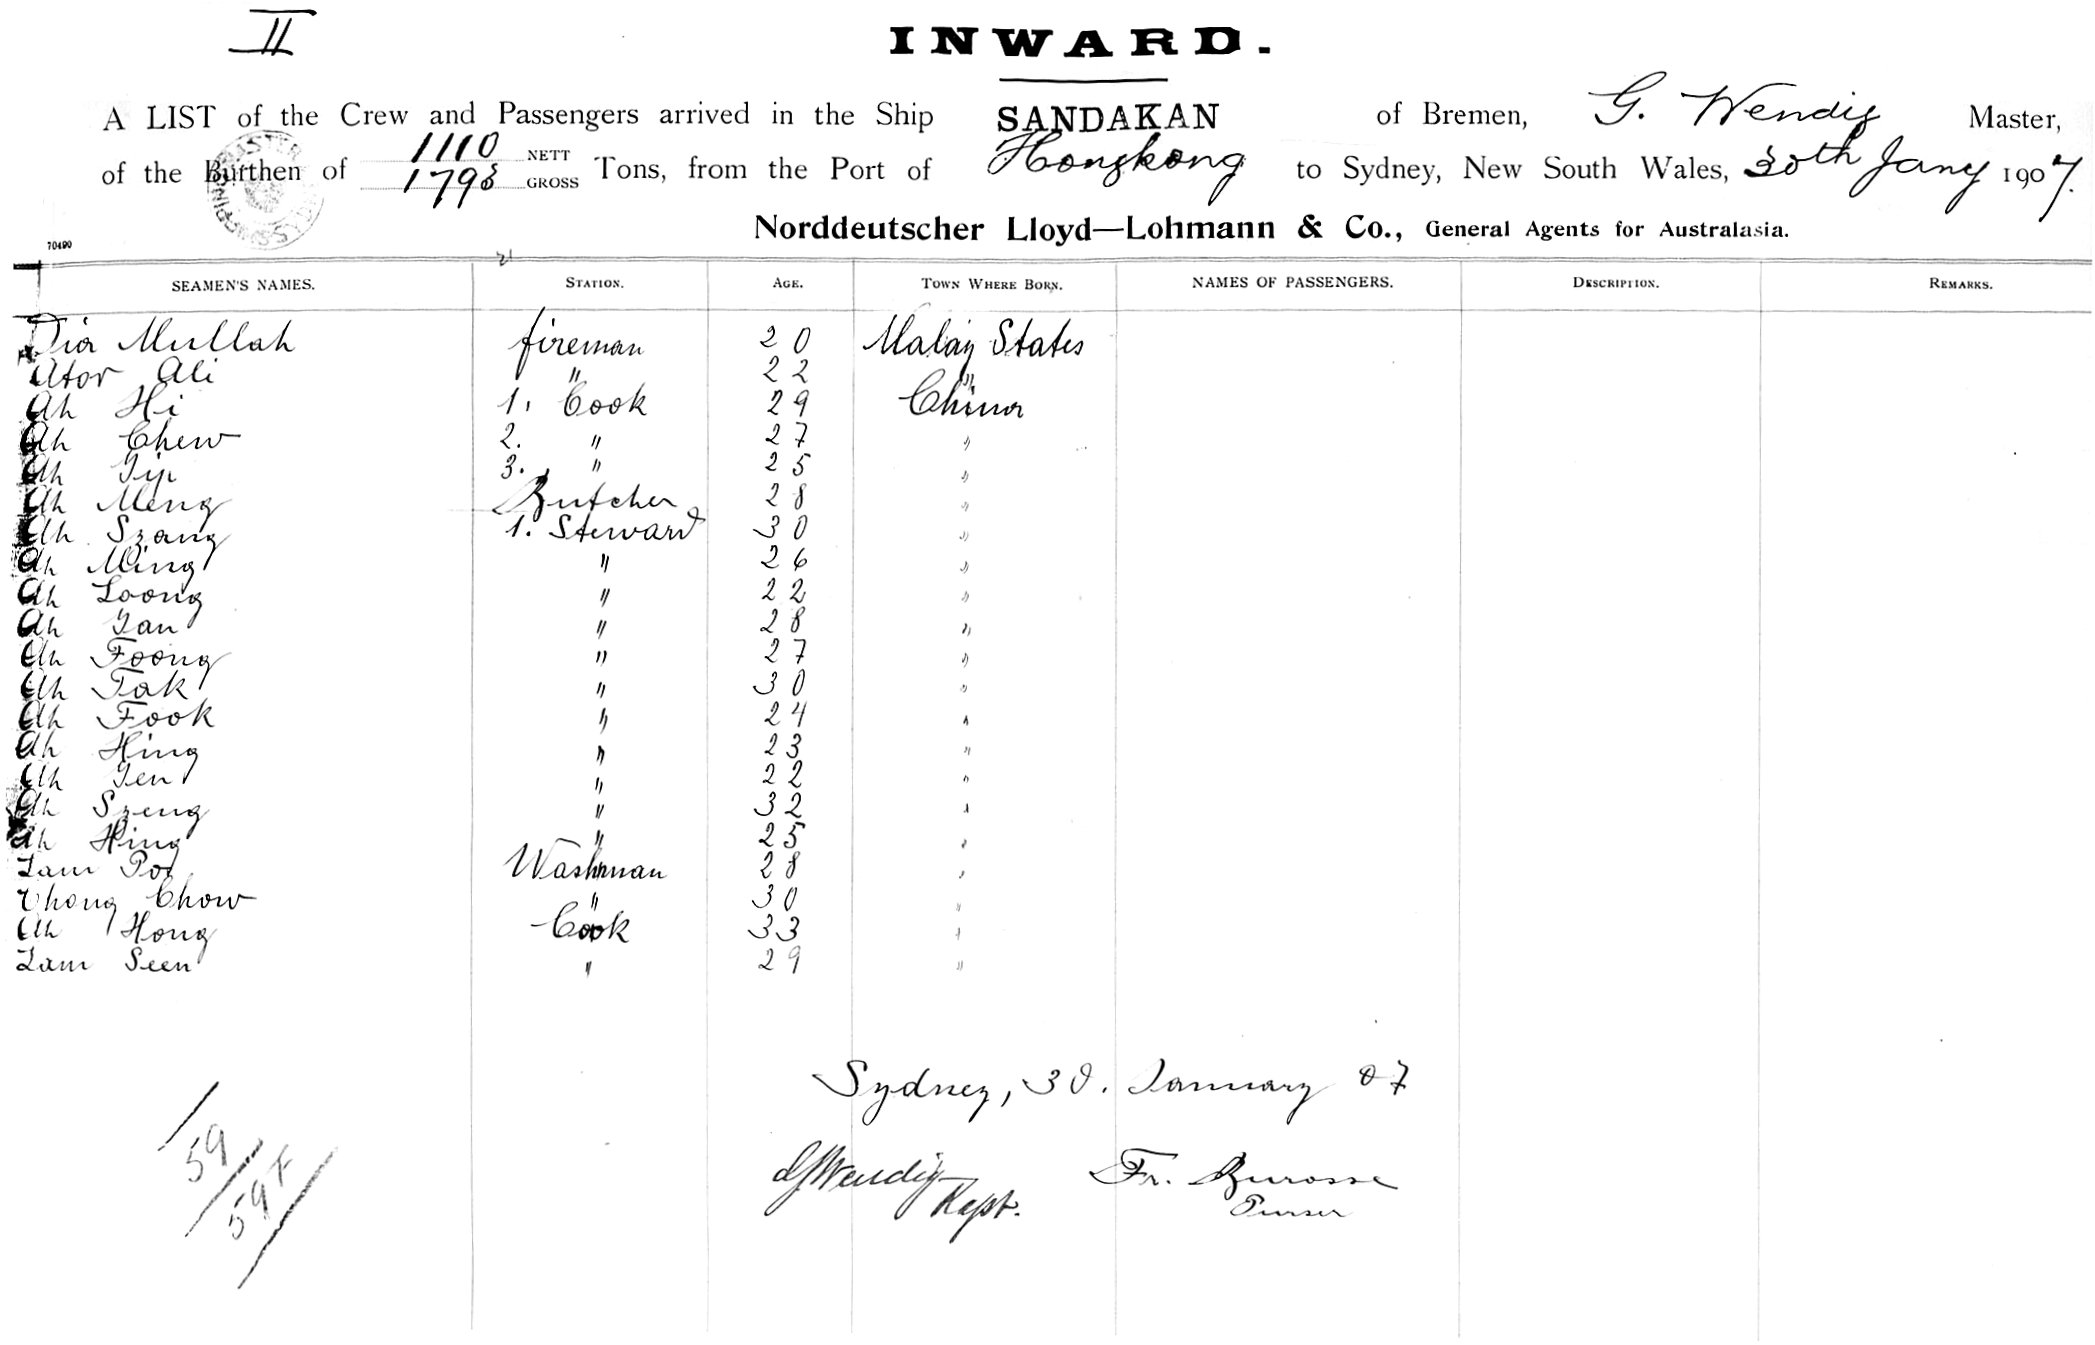 II
INWARD.
A LIST of the Crew and Passengers arrived in the Ship SANDAKAN of Bremen, G. Wendig Master,
of the Burthen of 1110 NETT 1793 GROSS Tons, from the Port of Hongkong to Sydney, New South Wales, 30th Jany 1907.
Norddeutscher Lloyd—Lohmann & Co., General Agents for Australasia.
70490
SEAMEN'S NAMES. STATION. AGE. TOWN WHERE BORN. NAMES OF PASSENGERS. DESCRIPTION. REMARKS.
Dia Mullah fireman 20 Malay States
Ator Ali " 22 "
Ah Hi 1. Cook 29 China
Ah Chew 2. " 27 "
Ah Yip 3. " 25 "
Ah Meng Butcher 28 "
Ah Szang 1. Steward 30 "
Ah Ming " 26 "
Ah Loong " 22 "
Ah Yan " 28 "
Ah Foong " 27 "
Ah Tak " 30 "
Ah Fook " 24 "
Ah Hing " 23 "
Ah Yen " 22 "
Ah Szeng " 32 "
Ah Hing " 23 "
Lam Poi Washman 28 "
Chong Chow " 30 "
Ah Hong Cook 33 "
Lam Seen " 29 "
Sydney, 30. January 07
59
59
G Wendig Fr. Burosse
Kapt. Purser